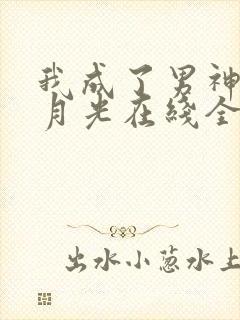 我成了男神
月光在线全
出水小葱水上